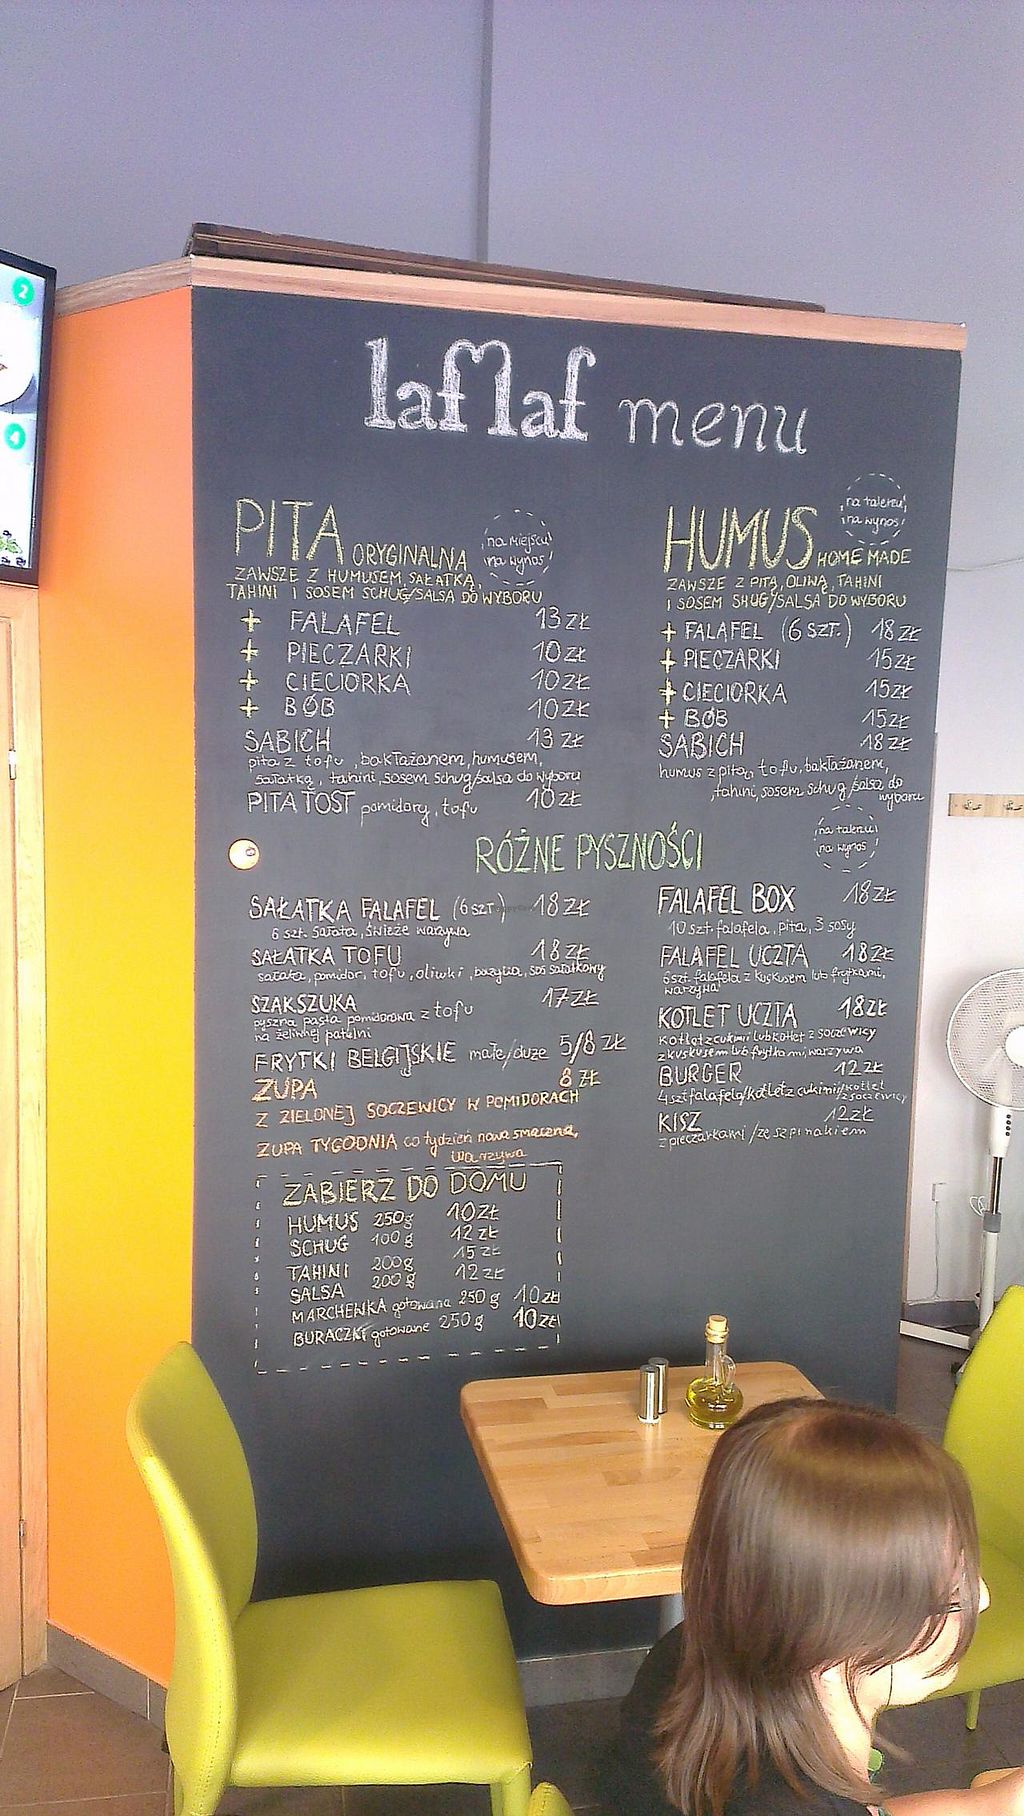 2
4
laf laf menu
PITA ORYGINALNA
na miejscu
na wynos
ZAWSZE Z HUMUSEM, SAŁATKĄ,
TAHINI I SOSEM SCHUG/SALSA DO WYBORU
+ FALAFEL 13 ZŁ
+ PIECZARKI 10 ZŁ
+ CIECIORKA 10 ZŁ
+ BÓB 10 ZŁ
SABICH 13 ZŁ
pita z tofu, bakłażanem, humusem,
sałatką, tahini, sosem schug/salsa do wyboru
PITA TOST pomidory, tofu 10 ZŁ
HUMUS HOME MADE
na talerzu
na wynos
ZAWSZE Z PITĄ, OLIWĄ, TAHINI
I SOSEM SHUG/SALSA DO WYBORU
+ FALAFEL (6 SZT.) 18 ZŁ
+ PIECZARKI 15 ZŁ
+ CIECIORKA 15 ZŁ
+ BÓB 15 ZŁ
SABICH 18 ZŁ
humus z pitą, tofu, bakłażanem,
tahini, sosem schug/salsa do
wyboru
RÓŻNE PYSZNOŚCI
na talerzu
na wynos
SAŁATKA FALAFEL (6 SZT) 18 ZŁ
6 szt. sałata, świeże warzywa
SAŁATKA TOFU 18 ZŁ
sałata, pomidor, tofu, oliwki, bazylia, sos sałatkowy
SZAKSZUKA 17 ZŁ
pyszna pasta pomidorowa z tofu
na żeliwnej patelni
FRYTKI BELGIJSKIE małe/duże 5/8 ZŁ
ZUPA 8 ZŁ
Z ZIELONEJ SOCZEWICY W POMIDORACH
ZUPA TYGODNIA co tydzień nowa smaczna,
warzywa
FALAFEL BOX 18 ZŁ
10 szt falafela, pita, 3 sosy
FALAFEL UCZTA 18 ZŁ
6 szt. falafela z kuskusem lub frytkami,
warzywa
KOTLET UCZTA 18 ZŁ
kotlet z cukinii lub kotlet z soczewicy
z kuskusem lub frytkami, warzywa
BURGER 12 ZŁ
4 szt falafela/kotlet z cukinii/kotlet
z soczewicy
KISZ 12 ZŁ
z pieczarkami/ze szpinakiem
ZABIERZ DO DOMU
HUMUS 250g 10 ZŁ
SCHUG 100 g 12 ZŁ
TAHINI 200g 15 ZŁ
SALSA 200g 12 ZŁ
MARCHEWKA gotowana 250 g 10 ZŁ
BURACZKI gotowane 250 g 10 ZŁ